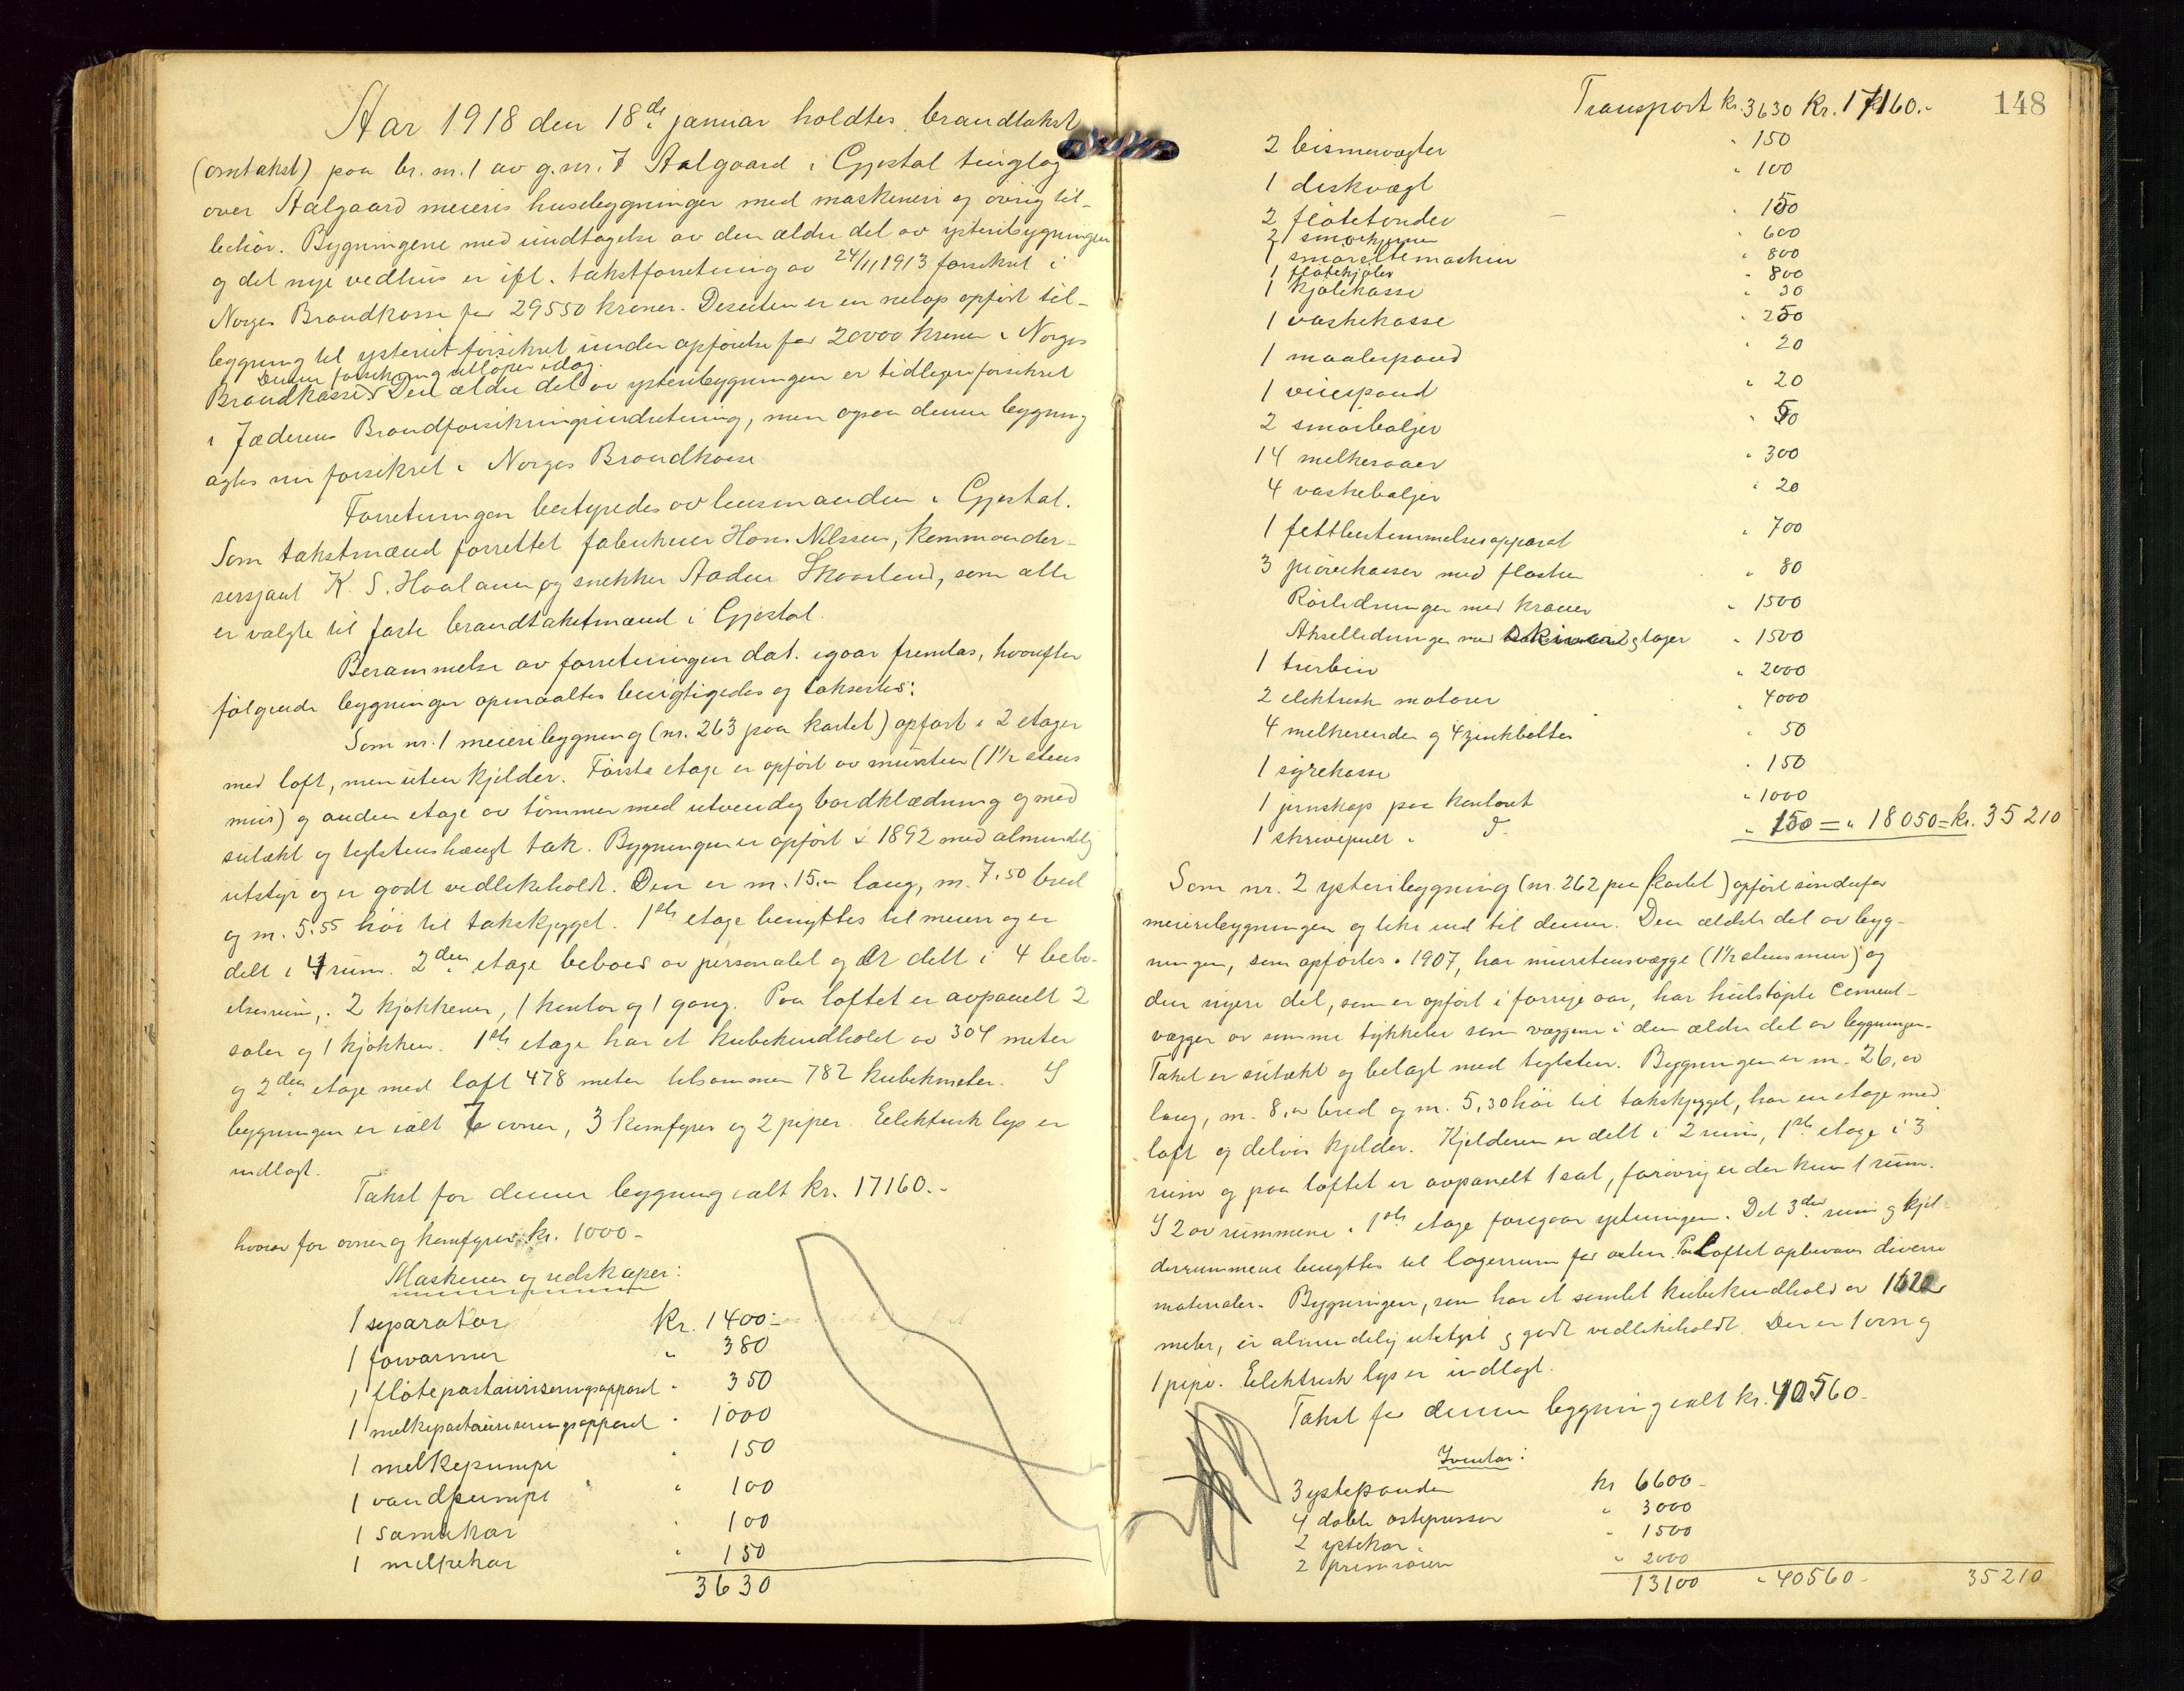 Aar 1918 den 18de januar holdtes brandtakst
(omtakst) paa br. nr. 1 av g. nr. 7 Aalgaard i Gjestal tinglag
over Aalgaard meieris husebygninger med maskineri og øvrig til-
behør. Bygningene med undtagelse av den ældre del av ysteribygningen
og det nye vedhus er ifl. takstforretning av 24/11 1913 forsikret i
Norges Brandkasse for 29550 kroner. Desuten er en netop opført til-
bygning til ysteriet forsikret under opførelse for 20000 kroner i Norges
Denne forsikring utløper idag.
Brandkasse. Den ældre del av ysteribygningen er tidligere forsikret
i Jæderens Brandforsikringsindretning, men ogsaa denne bygning
agtes nu forsikret i Norges Brandkasse
Forretningen bestyredes av lensmanden i Gjestal.
Som takstmænd forrettet fabrikeier Hans Nilssen, Kommander-
sersjant K. S. Haaland og snekker Aadne Skaarland, som alle
er valgte til faste brandtakstmænd i Gjestal.
Berammelse av forretningen dat. igaar fremlas, hvorefter
følgende bygninger opmaaltes besigtigedes og taksertes:
Som nr. 1 meieribygning (nr. 263 paa kartet) opført i 2 etager
med loft, men uten kjelder. Første etage er opført av mursten (1½ stens
mur) og anden etage av tømmer med utvendig bordklædning og med
sutækt og teglstenshængt tak. Bygningen er opført i 1892 med almindelig
utstyr og er godt vedlikeholdt. Den er m. 15,00 lang, m. 7,50 bred
og m. 5,55 høi til takskjegget. 1ste etage benyttes til meieri og er
delt i 4 rum. 2den etage beboes av personalet og er delt i 4 bebo-
elsesrum, 2 kjøkkener, 1 kontor og 1 gang. Paa loftet er avpanelt 2
saler og 1 kjøkken. 1ste etage har et kubikindhold av 304 meter
og 2den etage med loft 478 meter tilsammen 782 kubikmeter. I
bygningen er ialt 7 ovner, 3 komfyrer og 2 piper. Elektrisk lys er
indlagt.
Takst for denne bygning ialt kr. 17160.-
hvorav for ovner og komfyrer kr. 1000-
Maskiner og redskaper:
1 separator Kr. 1400.-
1 forvarmer " 380
1 fløtepasteuriseringsapparat " 350
1 melkepasteuriseringsapparat " 1000
1 melkepumpe " 150
1 vandpumpe " 100
1 samlekar " 100
1 melkekar " 150
3630
148
Transport kr. 3630 Kr. 17160.-
2 bismervægter " 150
1 diskvægt " 100
2 fløtetønder " 150
2 smørkjerner " 600
1 smøreltemaskin " 800
1 fløtekjøler " 800
1 kjølekasse " 30
1 vaskekasse " 250
1 maalespand " 20
1 veiespand " 20
2 smørbaljer " 50
14 melkesaaer " 300
4 vaskebaljer " 20
1 fettbestemmelsesapparat " 700
3 prøvekasser med flasker " 80
Rørledninger med kraner " 1500
Akselledninger med skiver og lager " 1500
1 turbin " 2000
2 elektrisk motorer " 4000
4 melkerender og 4 zinkbøtter " 50
1 syrekasse " 150
1 jernskap paa kontoret " 1000
1 skrivepult " d- " 150 = " 18050 = kr. 35210
Som nr. 2 ysteribygning (nr. 262 paa kartet) opført søndenfor
meieribygningen og like ind til denne. Den ældste del av byg-
ningen, som opførtes i 1907, har murstensvægge (1½ stens mur) og
den nyere del, som er opført i forrige aar, har hulstøpte cement-
vægger av samme tykkelse som væggene i den ældre del av bygningen.
Taket er sutækt og belagt med teglsten. Bygningen er m. 26,00
lang, m. 8,00 bred og m. 5,30 høi til takskjegget, har en etage med
loft og delvis kjelder. Kjelderen er delt i 2 rum, 1ste etage i 3
rum og paa loftet er avpanelt 1 sal, forøvrig er der kun 1 rum.
I 2 av rummene i 1ste etage foregaar ystningen. Det 3die rum og kjel-
derrummene benyttes til lagerrum for osten. Paa loftet opbevares diverse
materialer. Bygningen, som har et samlet kubikindhold av 1622
meter, er almindelig utstyrt og godt vedlikeholdt. Der er 1 ovn og
1 pipe. Elektrisk lys er indlagt.
Takst for denne bygning ialt kr. 40560-
Inventar:
3 ystepander kr 6600-
4 doble ostepresser " 3000
2 ystekar " 1500
2 " 2000
13100 " 40560- 35210